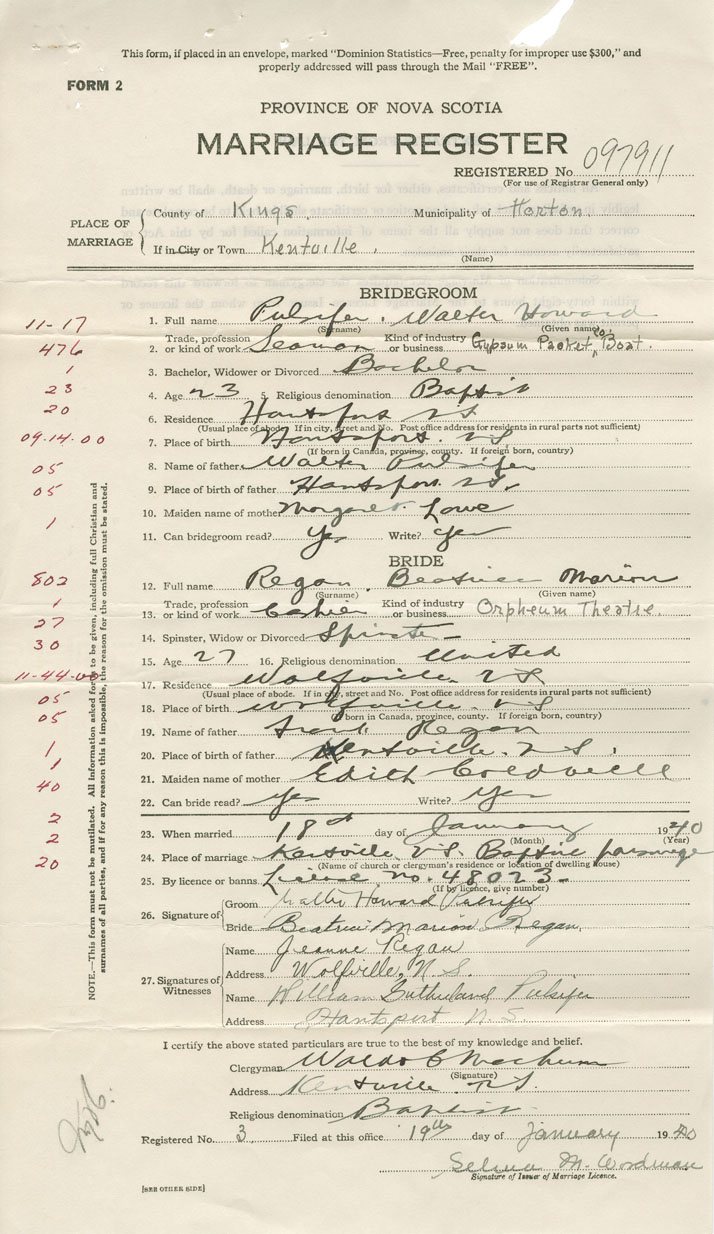 This form, if placed in an envelope, marked "Dominion Statistics—Free, penalty for improper use $300," and
properly addressed will pass through the Mail "FREE".
FORM 2
PROVINCE OF NOVA SCOTIA
MARRIAGE REGISTER
REGISTERED No. 097911
(For use of Registrar General only)
PLACE OF MARRIAGE
County of Kings Municipality of Horton
If in City or Town Kentville
(Name)
BRIDEGROOM
11-17 1. Full name Pulsifer. Walter Howard
(Surname) (Given name)
476 2. Trade, profession or kind of work Seaman Kind of industry or business Gypsum Packet Co. Boat.
1 3. Bachelor, Widower or Divorced Bachelor
23 4. Age 23 5. Religious denomination Baptist
20 6. Residence Hantsport NS
(Usual place of abode. If in city, street and No. Post office address for residents in rural parts not sufficient)
09.14.00 7. Place of birth Hantsport. NS
(If born in Canada, province, county. If foreign born, country)
05 8. Name of father Walter Pulsifer
05 9. Place of birth of father Hantsport. NS.
10. Maiden name of mother Margaret Lowe
1 11. Can bridegroom read? Yes Write? Yes
BRIDE
802 12. Full name Regan. Beatrice Marion
(Surname) (Given name)
1 13. Trade, profession or kind of work Cashier Kind of industry or business Orpheum Theatre.
27 14. Spinster, Widow or Divorced Spinster
30 15. Age 27 16. Religious denomination United
11-44-00 17. Residence Wolfville. NS
(Usual place of abode. If in city, street and No. Post office address for residents in rural parts not sufficient)
05 18. Place of birth Wolfville. NS
(If born in Canada, province, county. If foreign born, country)
05 19. Name of father Frank Regan
1 20. Place of birth of father Kentville. NS.
1 21. Maiden name of mother Edith Coldwell
40 22. Can bride read? Yes Write? Yes
2 23. When married 18th day of January 1940
(Month) (Year)
2 24. Place of marriage Kentville NS Baptist parsonage
(Name of church or clergyman's residence or location of dwelling house)
20 25. By licence or banns License no. 48023-
(If by licence, give number)
26. Signature of Groom Walter Howard Pulsifer
Bride Beatrice Marion Regan.
27. Signatures of Witnesses
Name Jeanne Regan
Address Wolfville, N.S.
Name William Sutherland Pulsifer
Address Hantsport N.S.
I certify the above stated particulars are true to the best of my knowledge and belief.
Clergyman Waldo C Machum
(Signature)
Address Kentville NS.
Religious denomination Baptist
Registered No. 3 Filed at this office 19th day of January 1940
Selena M. Woodman
Signature of Issuer of Marriage Licence.
[SEE OTHER SIDE]
NOTE.—This form must not be mutilated. All information asked for is to be given, including full Christian and
surnames of all parties, and if for any reason this is impossible, the reason for the omission must be stated.